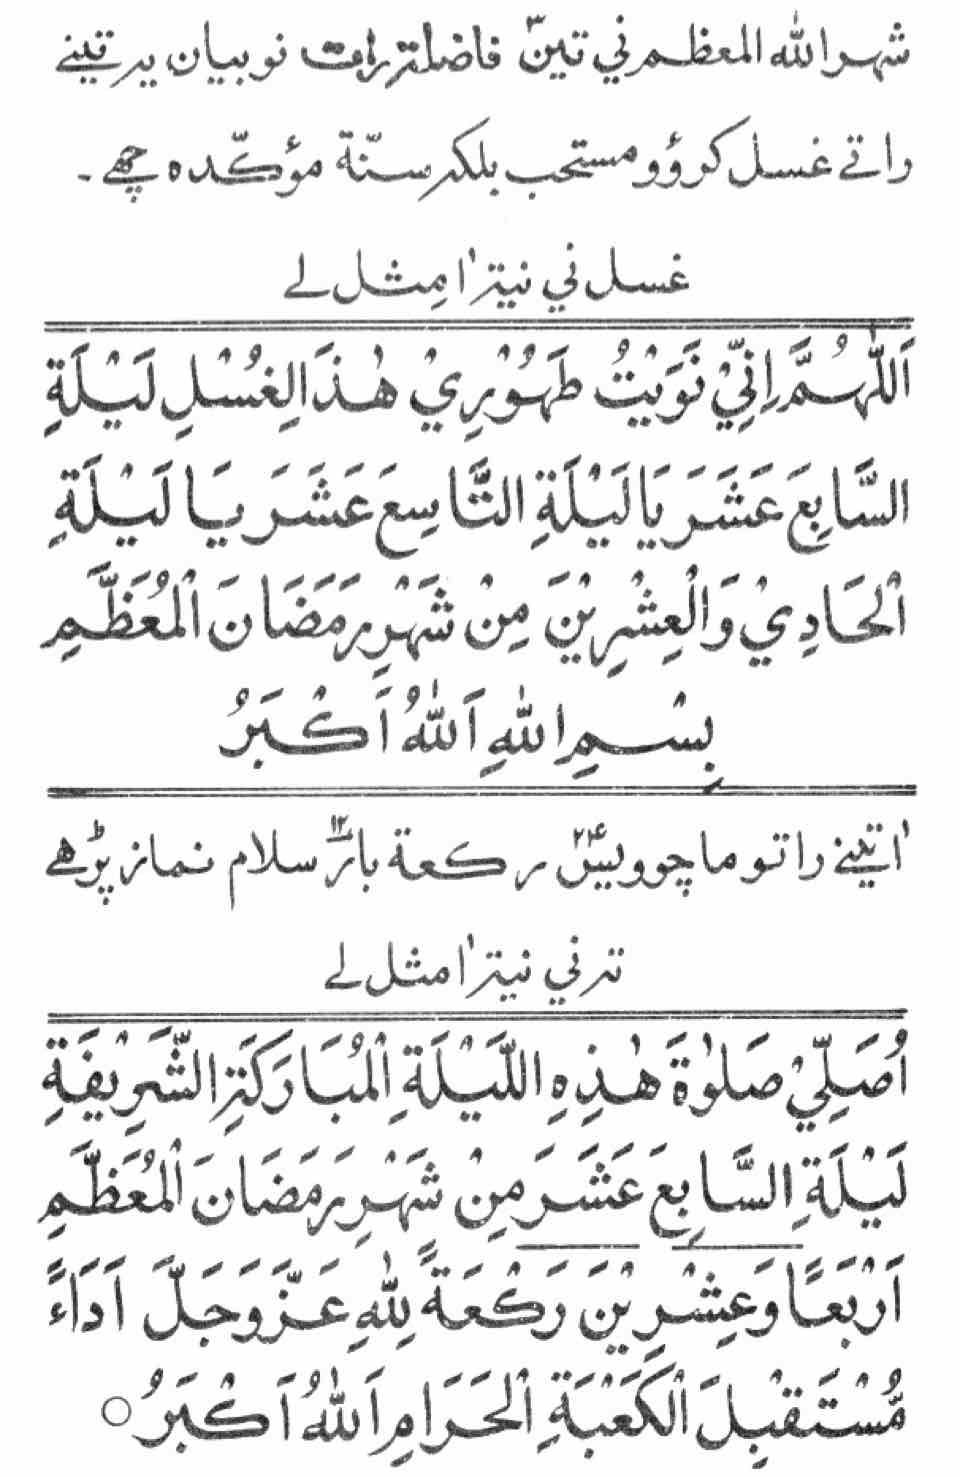 شهر الله المعظم ني تين٣ فاضلة رات نو بيان يہ تينے
راتے غسل كرؤو مستحب بلكہ سنّة مؤكّده چھے۔
غسل ني نية ا مِثل لے
اَللّٰهُمَّ اِنِّيْ نَوَيْتُ طَهُوْرِيْ هٰذَا لِغُسْلِ لَيْلَةِ
السَّابِعَ عَشَرَ يَا لَيْلَةِ التَّاسِعَ عَشَرَ يَا لَيْلَةِ
الْحَادِيْ وَالْعِشْرِيْنَ مِنْ شَهْرِ رَمَضَانَ الْمُعَظَّمِ
بِسْمِ اللهِ اَللهُ اَكْبَرُ
ا تينے راتو ما چوويس٢٤ ركعة بار١٢ سلام نماز پڑھے
تہ ني نية ا مثل لے
اُصَلِّيْ صَلٰوةَ هٰذِهِ اللَّيْلَةِ الْمُبَارَكَةِ الشَّرِيفَةِ
لَيْلَةِ السَّابِعَ عَشَرَ مِنْ شَهْرِ رَمَضَانَ الْمُعَظَّمِ
اَرْبَعًا وَعِشْرِيْنَ رَكْعَةً لِلّٰهِ عَزَّ وَجَلَّ اَدَاءً
مُسْتَقْبِلَ الْكَعْبَةِ الْحَرَامِ اَللهُ اَكْبَرُ ○